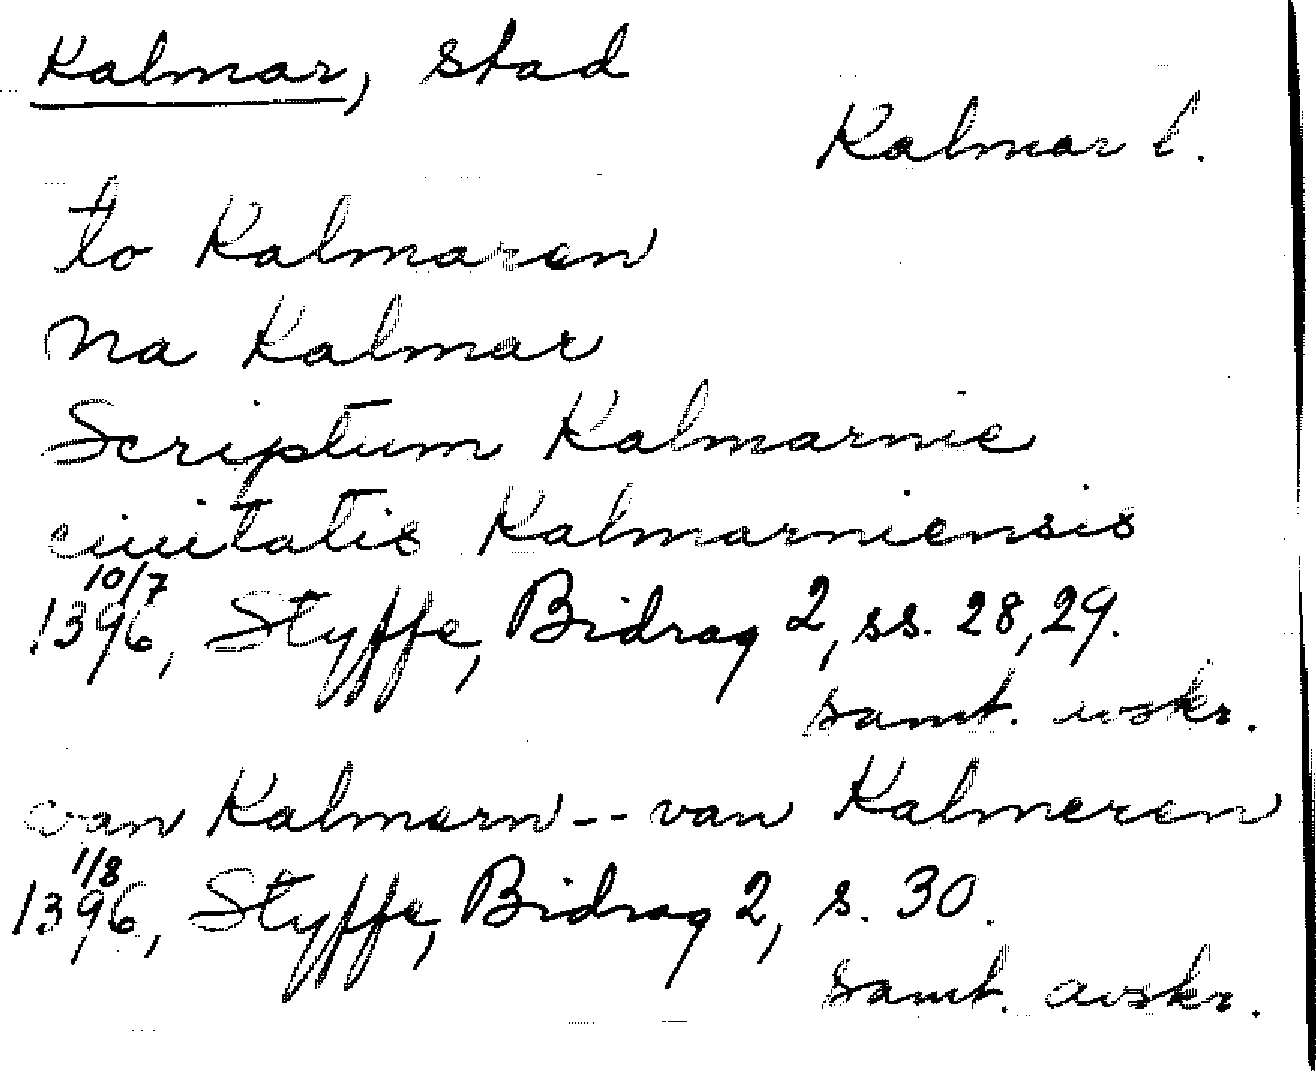 Kalmar, stad
Kalmar l.
to Kalmaren
na Kalmar
Scriptum Kalmarnie
ciuitatis Kalmarniensis
10/7
1396, Styffe, Bidrag 2, ss. 28, 29.
samt. avskr.
van Kalmarn -- van Kalmeren
1/8
1396, Styffe, Bidrag 2, s. 30.
samt. avskr.